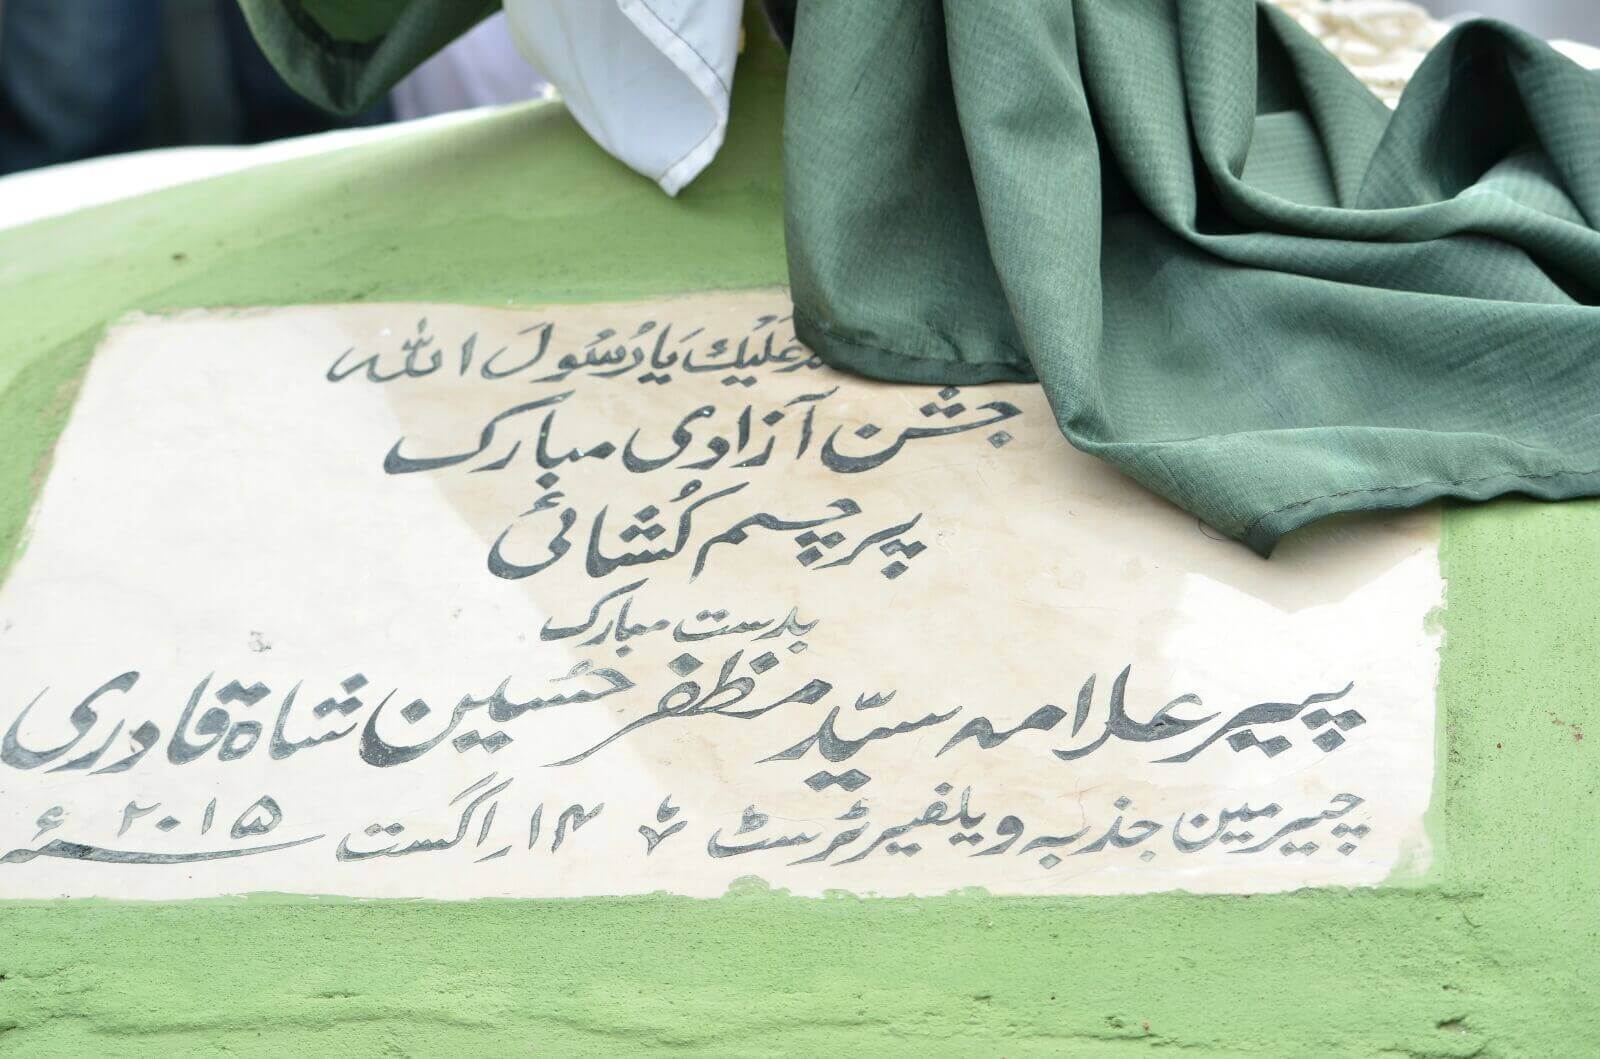 عَلَیْكَ یَا رَسُولَ اللہ
جشن آزادی مبارک
پرچم کُشائی
بدست مبارک
پیر علامہ سیّد مظفر حسین شاہ قادری
چیرمین جذبہ ویلفیر ٹرسٹ ۱۴ اگست ۲۰۱۵ء